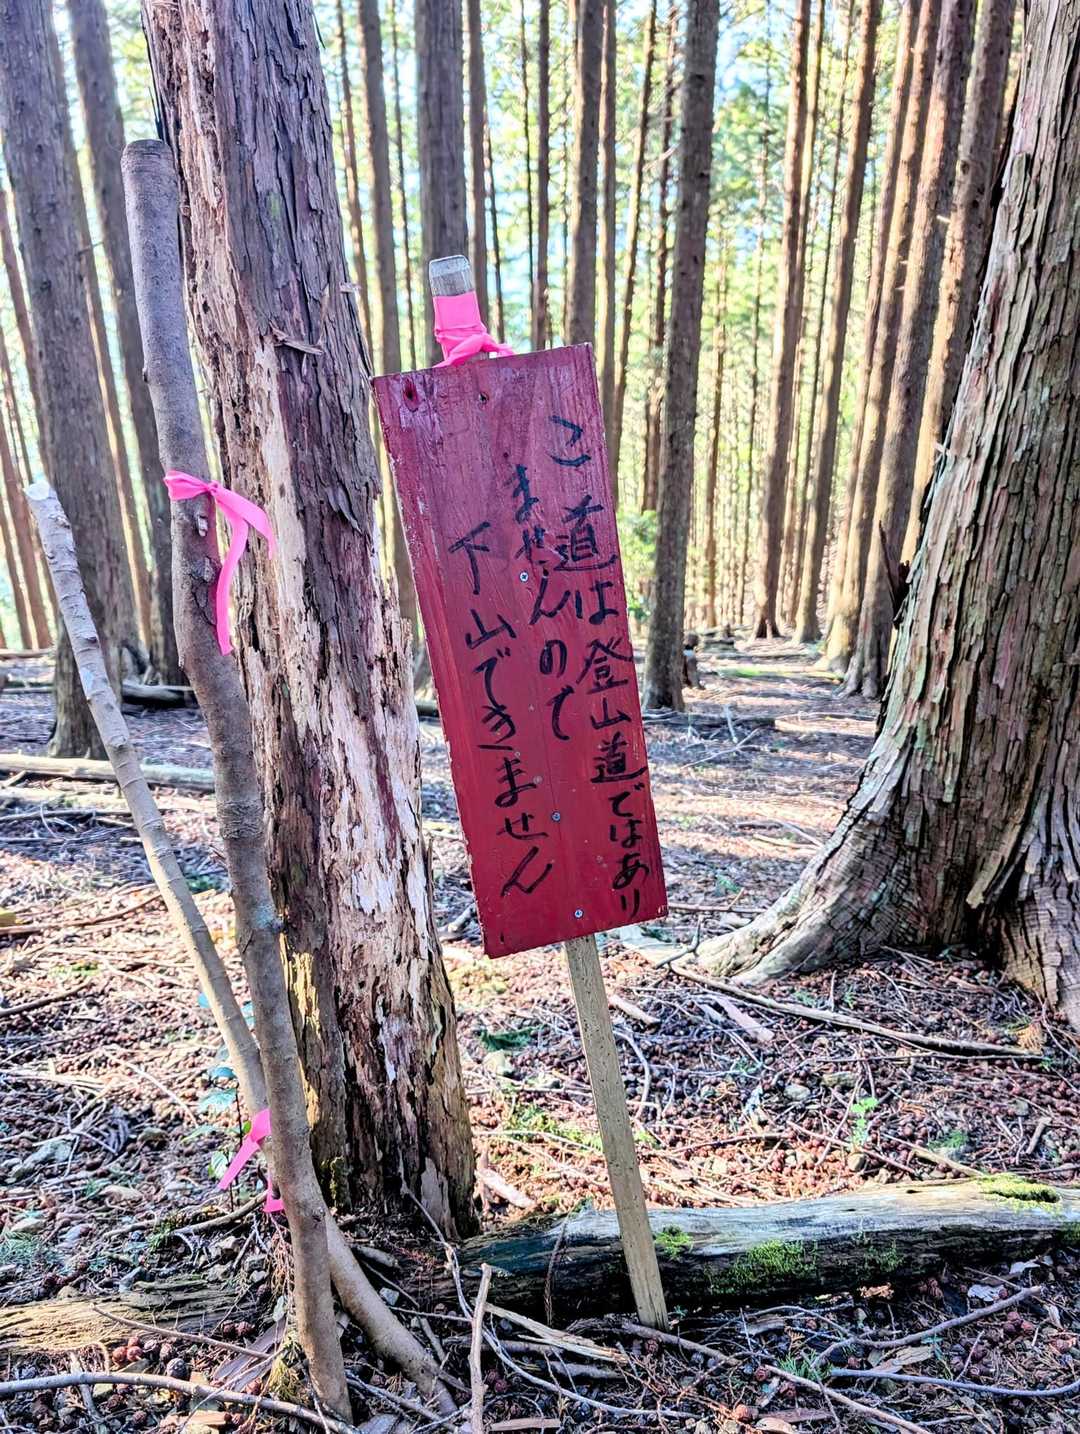 こ道は登山道ではあり
ませんので
下山できません